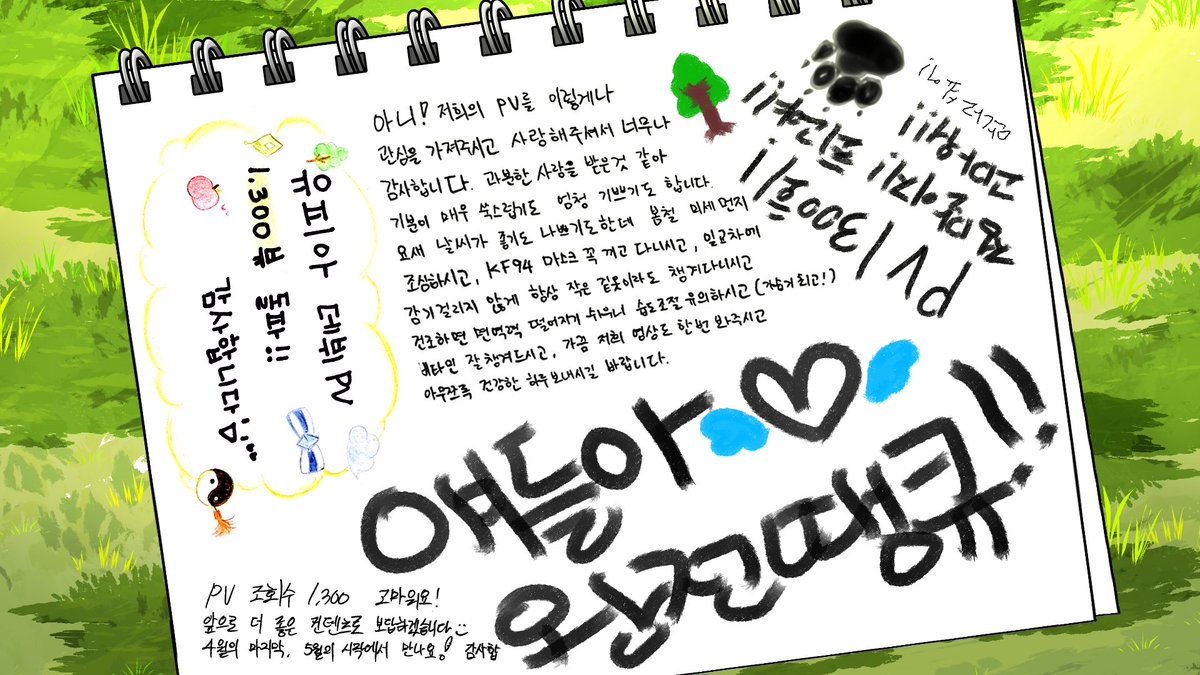 유피아 데뷔 PV
1,300뷰 돌파!!
감사합니다♡!...
아니! 저희의 PV를 이렇게나
관심을 가져주시고 사랑해주셔서 너무나
감사합니다. 과분한 사랑을 받은것 같아
기분이 매우 쑥스럽기도 엄청 기쁘기도 합니다.
요새 날씨가 좋기도 나쁘기도한데 봄철 미세먼지
조심하시고, KF94 마스크 꼭 끼고 다니시고, 일교차에
감기걸리지 않게 항상 작은 겉옷이라도 챙겨다니시고
건조하면 면역력 떨어지기 쉬우니 습도조절 유의하시고 (가습기 최고!)
비타민 잘 챙겨드시고, 가끔 저희 영상도 한번 봐주시고
아무쪼록 건강한 하루 보내시길 바랍니다.
PV 1300회!!
고마워요!!
얘들아♡
완전땡큐!!
PV 조회수 1,300 고마워요!
앞으로 더 좋은 컨텐츠로 보답하겠습니다
4월의 마지막, 5월의 시작에서 만나요! 감사합